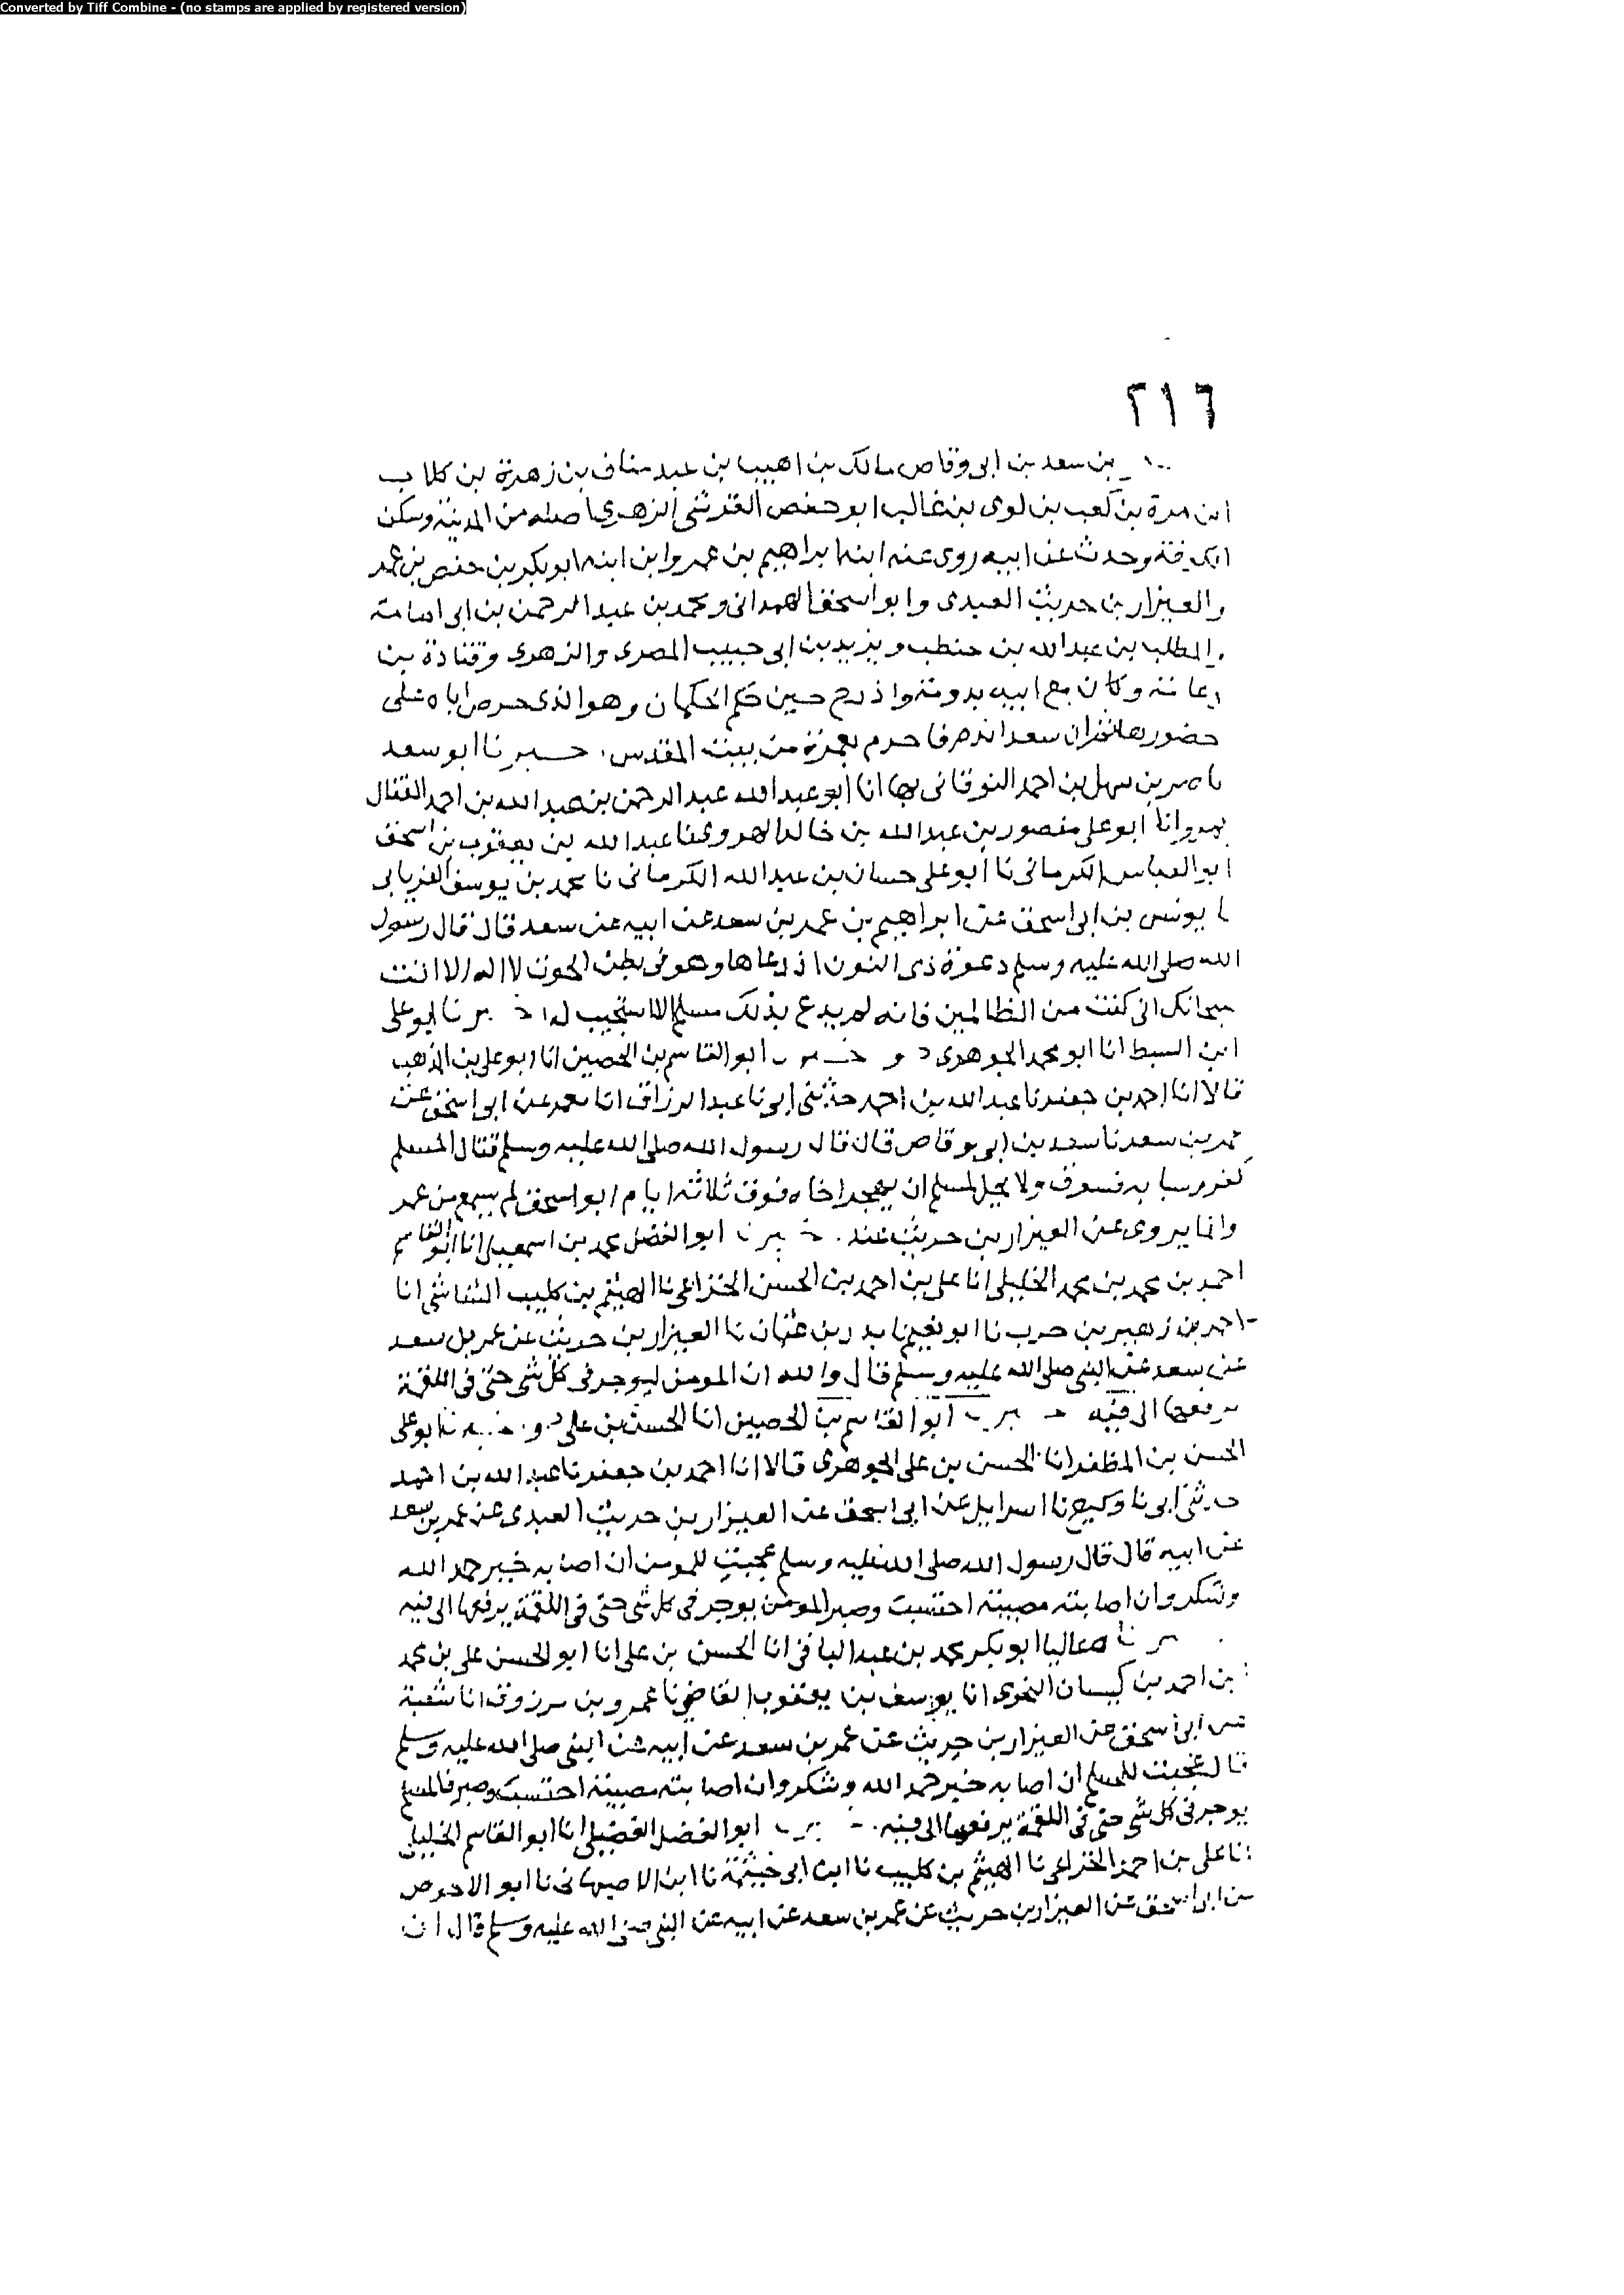 Converted by Tiff Combine - (no stamps are applied by registered version)
٢١٦
بن سعد بن ابى وقاص مالك بن اهيب بن عبد مناف بن زهرة بن كلاب
ابن مرة بن كعب بن لوى بن غالب ابو حفص القرشى الزهرى اصله من المدينة وسكن
الكوفة وحدث عن ابيه روى عنه ابنه ابراهيم بن عمر وابن ابنه ابو بكر بن حفص بن عمر
والعيزار بن حريث العبدى وابو اسحق الهمدانى ومحمد بن عبد الرحمن بن ابى
والمطلب بن عبد الله بن حنطب ويزيد بن ابى حبيب المصرى والزهرى وقتادة بن
دعامة وكان مع ابيه بدومة واذرح حين حكم الحكمان وهو الذى حرض اباه على
حضورها ثم ان سعدا ندم فاحرم بعمرة من بيت المقدس اخبرنا ابو سعد
ناصر بن سهل بن احمد النوقانى بها انا ابو عبد الله عبد الرحمن بن عبد الله بن احمد القفال
بمرو انا ابو على منصور بن عبد الله بن خالد الهروى نا عبد الله بن يعقوب بن اسحق
ابو العباس الكرمانى نا ابو على حسان بن عبد الله الكرمانى نا محمد بن يوسف الفريابى
نا يونس بن ابى اسحق عن ابراهيم بن عمر بن سعد عن ابيه عن سعد قال قال رسول
الله صلى الله عليه وسلم دعوة ذى النون اذ دعاها وهو فى بطن الحوت لا اله الا انت
سبحانك انى كنت من الظالمين فانه لم يدع بذلك مسلم الا استجيب له اخبرنا ابو على
ابن السبط انا ابو محمد الجوهرى ح و ابو القاسم بن الحصين انا ابو على بن المذهب
قالا انا احمد بن جعفر نا عبد الله بن احمد حدثنى ابى نا عبد الرزاق انا معمر عن ابى اسحق عن
عمر بن سعد نا سعد بن ابى وقاص قال قال رسول الله صلى الله عليه وسلم قتال المسلم
كفر وسبابه فسوق ولا يحل لمسلم ان يهجر اخاه فوق ثلاثة ايام ابو اسحق لم يسمع من عمر
وانما يروى عن العيزار بن حريث عنه اخبرنا ابو الفضل محمد بن اسمعيل انا ابو القاسم
احمد بن محمد بن محمد الخليلى انا على بن احمد بن الحسن الخزاعى نا الهيثم بن كليب الشاشى انا
احمد بن زهير بن حرب نا ابو نعيم نا بدر بن عثمان نا العيزار بن حريث عن عمر بن سعد
عن سعد عن النبى صلى الله عليه وسلم قال والله ان المومن ليوجر فى كل شى حتى فى اللقمة
يرفعها الى فيه اخبرنا ابو القاسم بن الحصين انا الحسن بن على ح و نا ابو على
الحسن بن المظفر انا الحسن بن على الجوهرى قالا انا احمد بن جعفر نا عبد الله بن احمد
حدثنى ابى نا وكيع نا اسرايل عن ابى اسحق عن العيزار بن حريث العبدى عن عمر بن سعد
عن ابيه قال قال رسول الله صلى الله عليه وسلم عجبت للمومن ان اصابه خير حمد الله
وشكر وان اصابته مصيبة احتسب وصبر المومن يوجر فى كل شى حتى فى اللقمة يرفعها الى فيه
عاليا ابو بكر محمد بن عبد الباقى انا الحسن بن على انا ابو الحسن على بن محمد
بن احمد بن كيسان النحوى انا يوسف بن يعقوب القاضى نا عمرو بن مرزوق انا شعبة
عن ابى اسحق عن العيزار بن حريث عن عمر بن سعد عن ابيه عن النبى صلى الله عليه وسلم
قال عجبت للمسلم ان اصابه خير حمد الله وشكر وان اصابته مصيبة احتسب وصبر فالمسلم
يوجر فى كل شى حتى فى اللقمة يرفعها الى فيه اخبرنا ابو الفضل الفضيلى انا ابو القاسم الخليلى
انا على بن احمد الخزاعى نا الهيثم بن كليب نا ابن ابى خيثمة نا ابن الاصبهانى نا ابو الاحوص
عن ابى اسحق عن العيزار بن حريث عن عمر بن سعد عن ابيه عن النبى صلى الله عليه وسلم قال ان